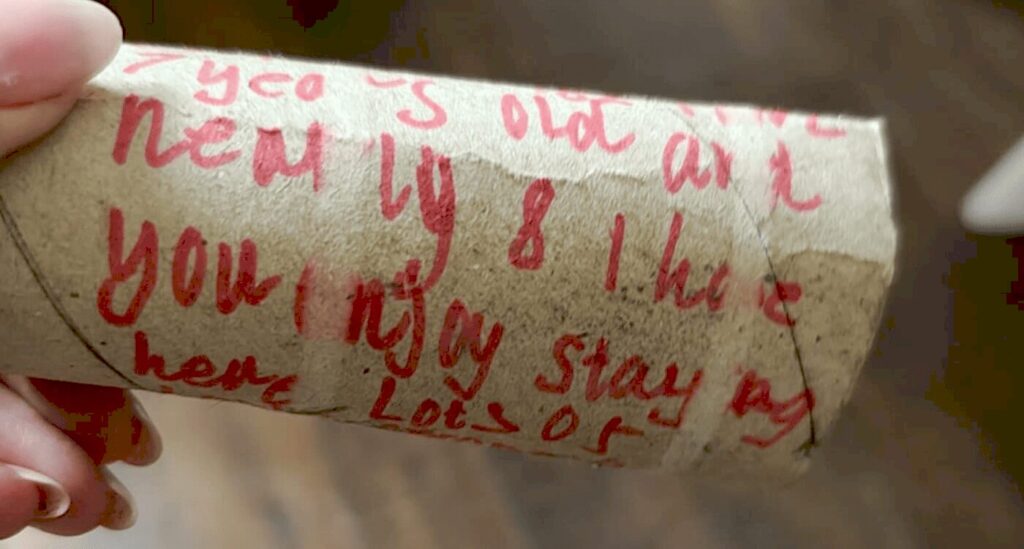 7 years old and
nearly 8 I hope
you injoy staying
here Lots of